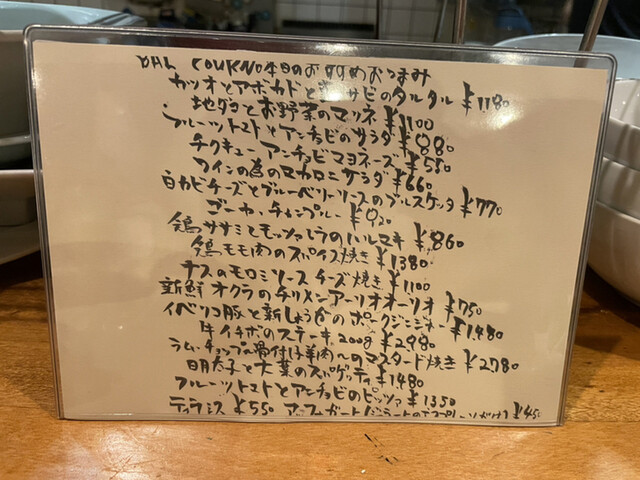 DAL COUKNO本日のおすすめおつまみ
カツオとアボカドとワサビのタルタル ¥1180
地ダコとお野菜のマリネ ¥1100
フルーツトマトとアンチョビのサラダ ¥880
チクキュー アンチョビマヨネーズ ¥550
ワインの為のマカロニサラダ ¥660
白カビチーズとブルーベリーソースのブルスケッタ ¥770
ゴーヤ・チャンプルー ¥920
鶏ササミとモッツァレラのハルマキ ¥860
鶏モモ肉のスパイス焼き ¥1380
ナスのモロミソースチーズ焼き ¥1100
新鮮オクラのチリメンアーリオオーリオ ¥750
イベリコ豚と新しょうがのポークジンジャー ¥1,480
牛イチボのステーキ 200g ¥2980
ラム・チョップ(骨付仔羊肉)のマスタード焼き ¥2780
明太子と大葉のスパゲッティ ¥1480
フルーツトマトとアンチョビのピッツァ ¥1350
ティラミス ¥550 アッフォガート ¥450